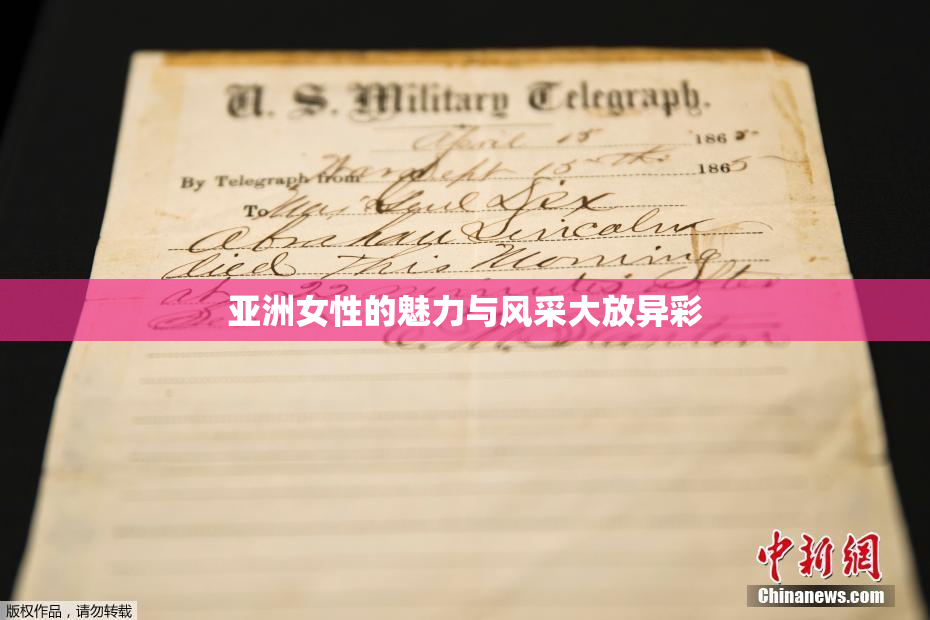 U. S. Military Telegraph.
April 15 1865
By Telegraph from War Dept 15th 1865
To Maj Genl Dix
Abraham Lincoln
died This Morning
at 22 minutes after
亚洲女性的魅力与风采大放异彩
中新网
Chinanews.com
版权作品，请勿转载